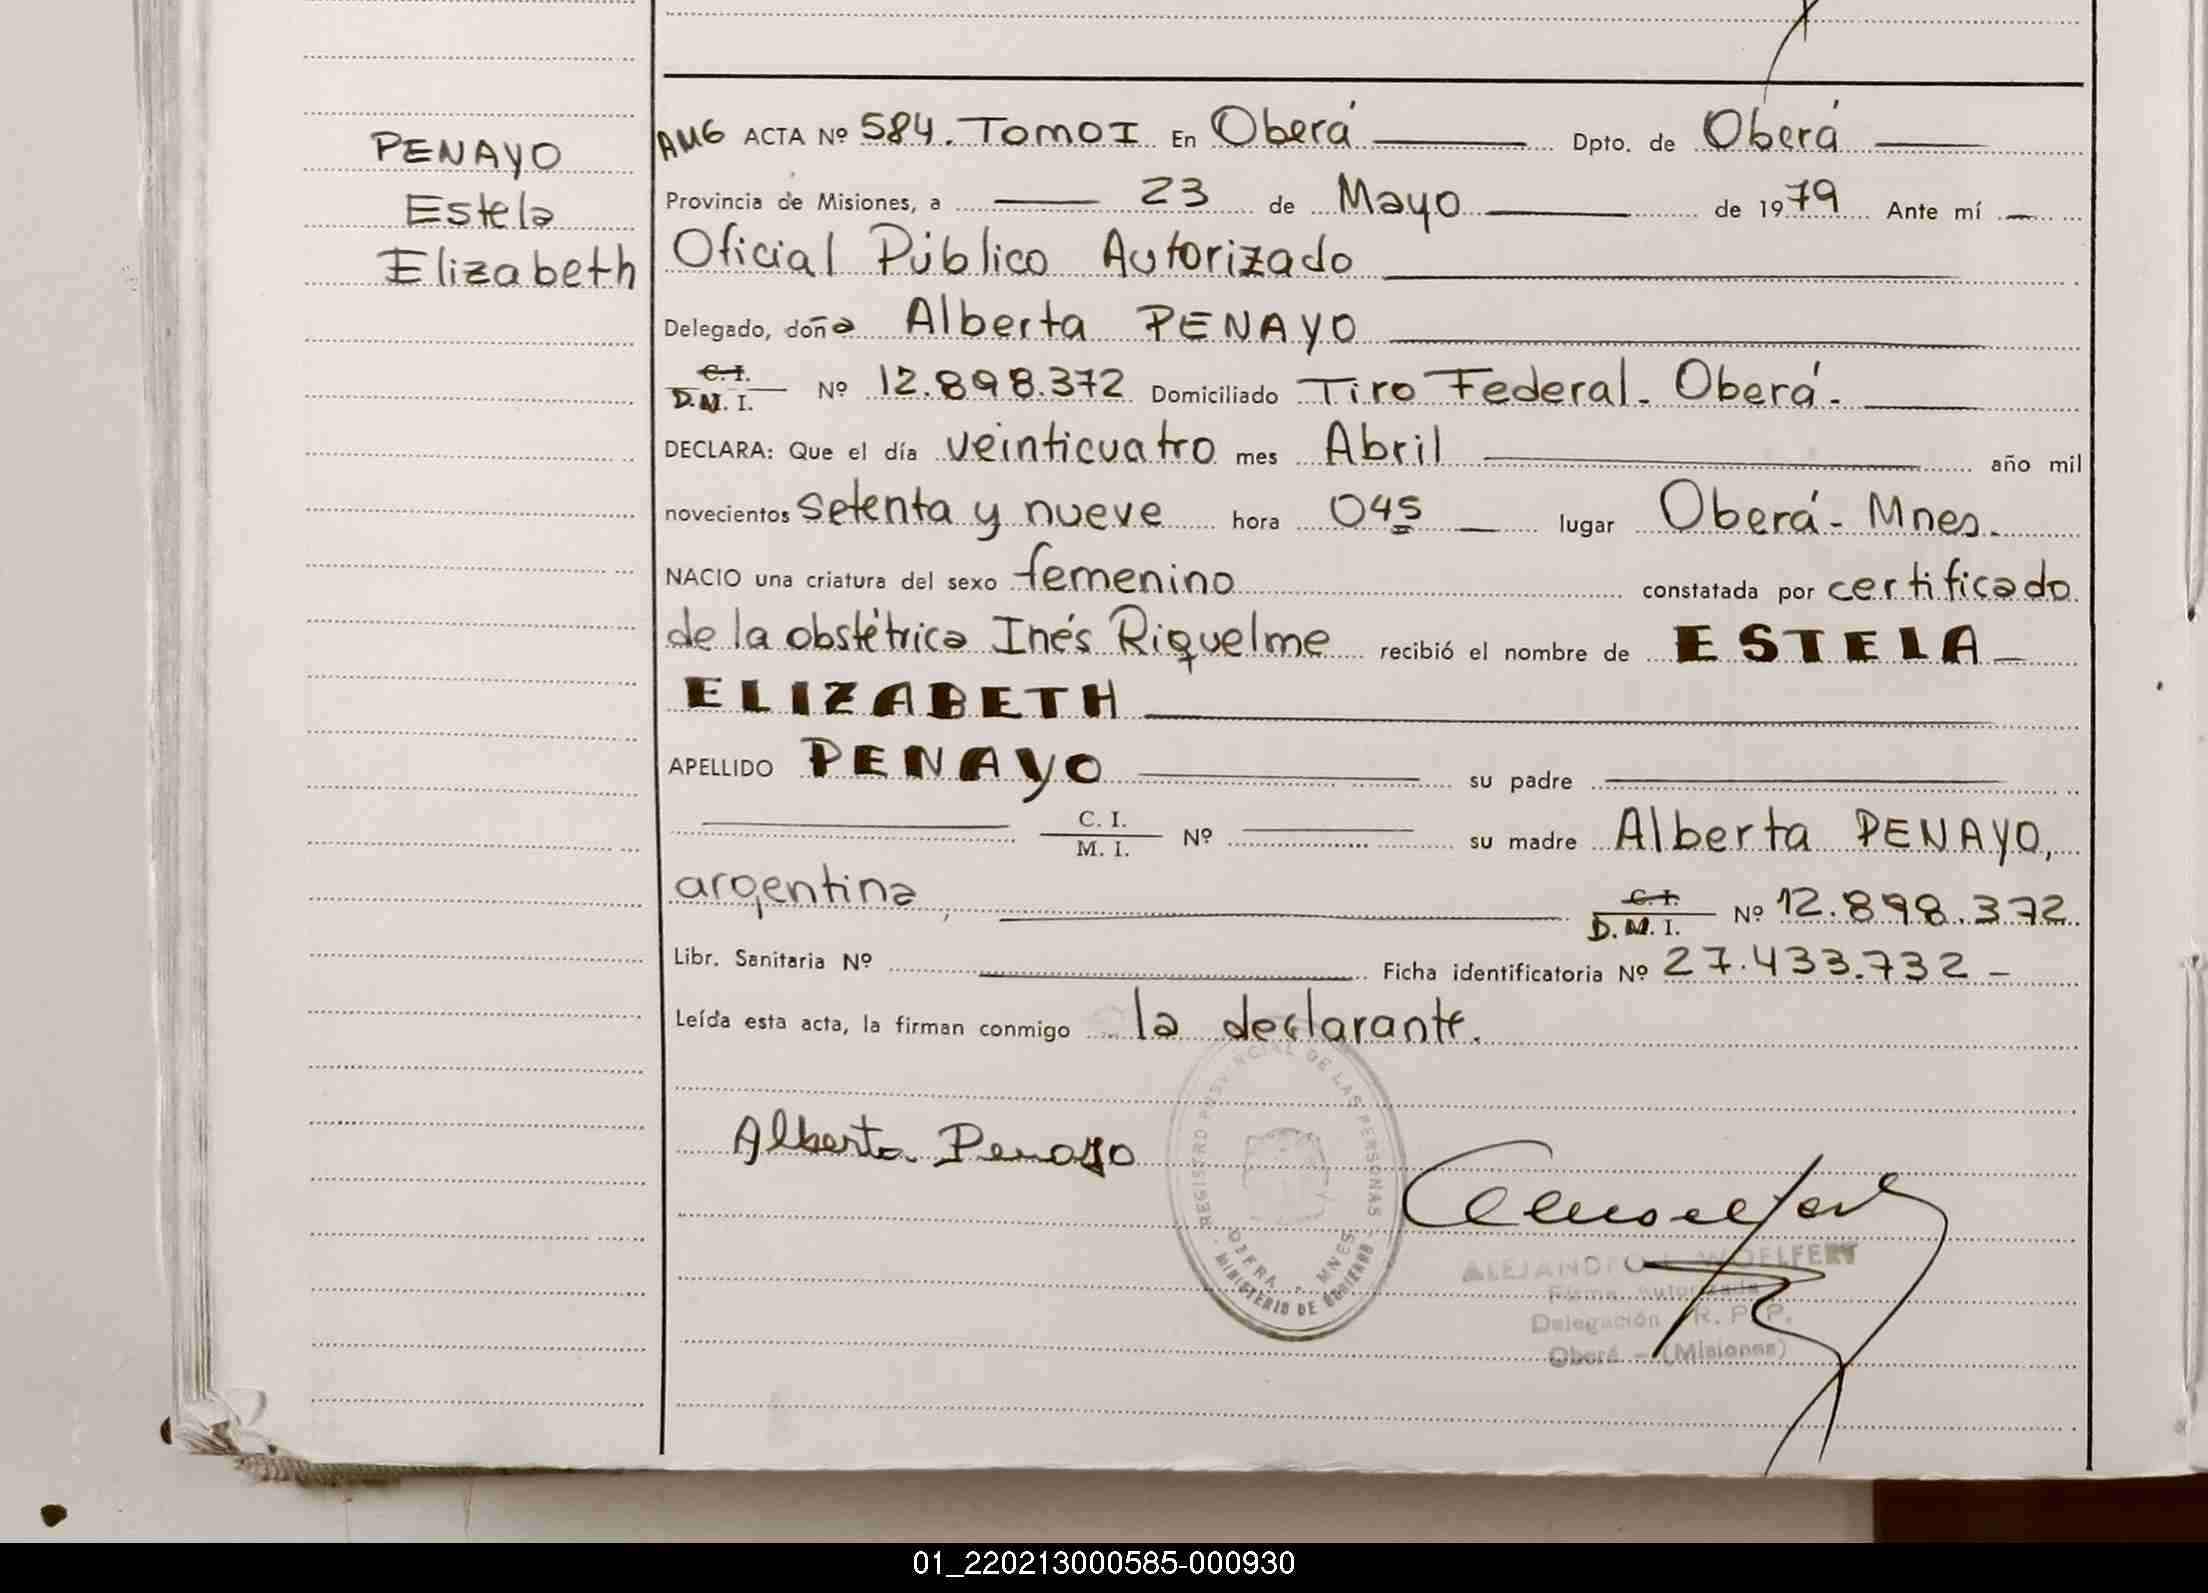 PENAYO
Estela
Elizabeth
AMG ACTA Nº 584. Tomo I En Oberá Dpto. de Oberá
Provincia de Misiones, a 23 de Mayo de 1979 Ante mí
Oficial Público Autorizado
Delegado, doña Alberta PENAYO
C. I.
D.M. I. Nº 12.898.372 Domiciliado Tiro Federal - Oberá -
DECLARA: Que el día veinticuatro mes Abril año mil
novecientos setenta y nueve hora 045 lugar Oberá - Mnes.
NACIO una criatura del sexo femenino constatada por certificado
de la obstétrica Inés Riquelme recibió el nombre de ESTELA
ELIZABETH
APELLIDO PENAYO su padre
C. I.
M. I. Nº su madre Alberta PENAYO,
argentina, C. I.
D. M. I. Nº 12.898.372
Libr. Sanitaria Nº Ficha identificatoria Nº 27.433.732 -
Leída esta acta, la firman conmigo la declarante.
REGISTRO PROVINCIAL DE LAS PERSONAS
OBERA - MNES.
MINISTERIO DE GOBIERNO
Alberta Penayo
ALEJANDRO WOELFERT
Firma Autorizada
Delegación R. P. P.
Oberá - (Misiones)
01_220213000585-000930